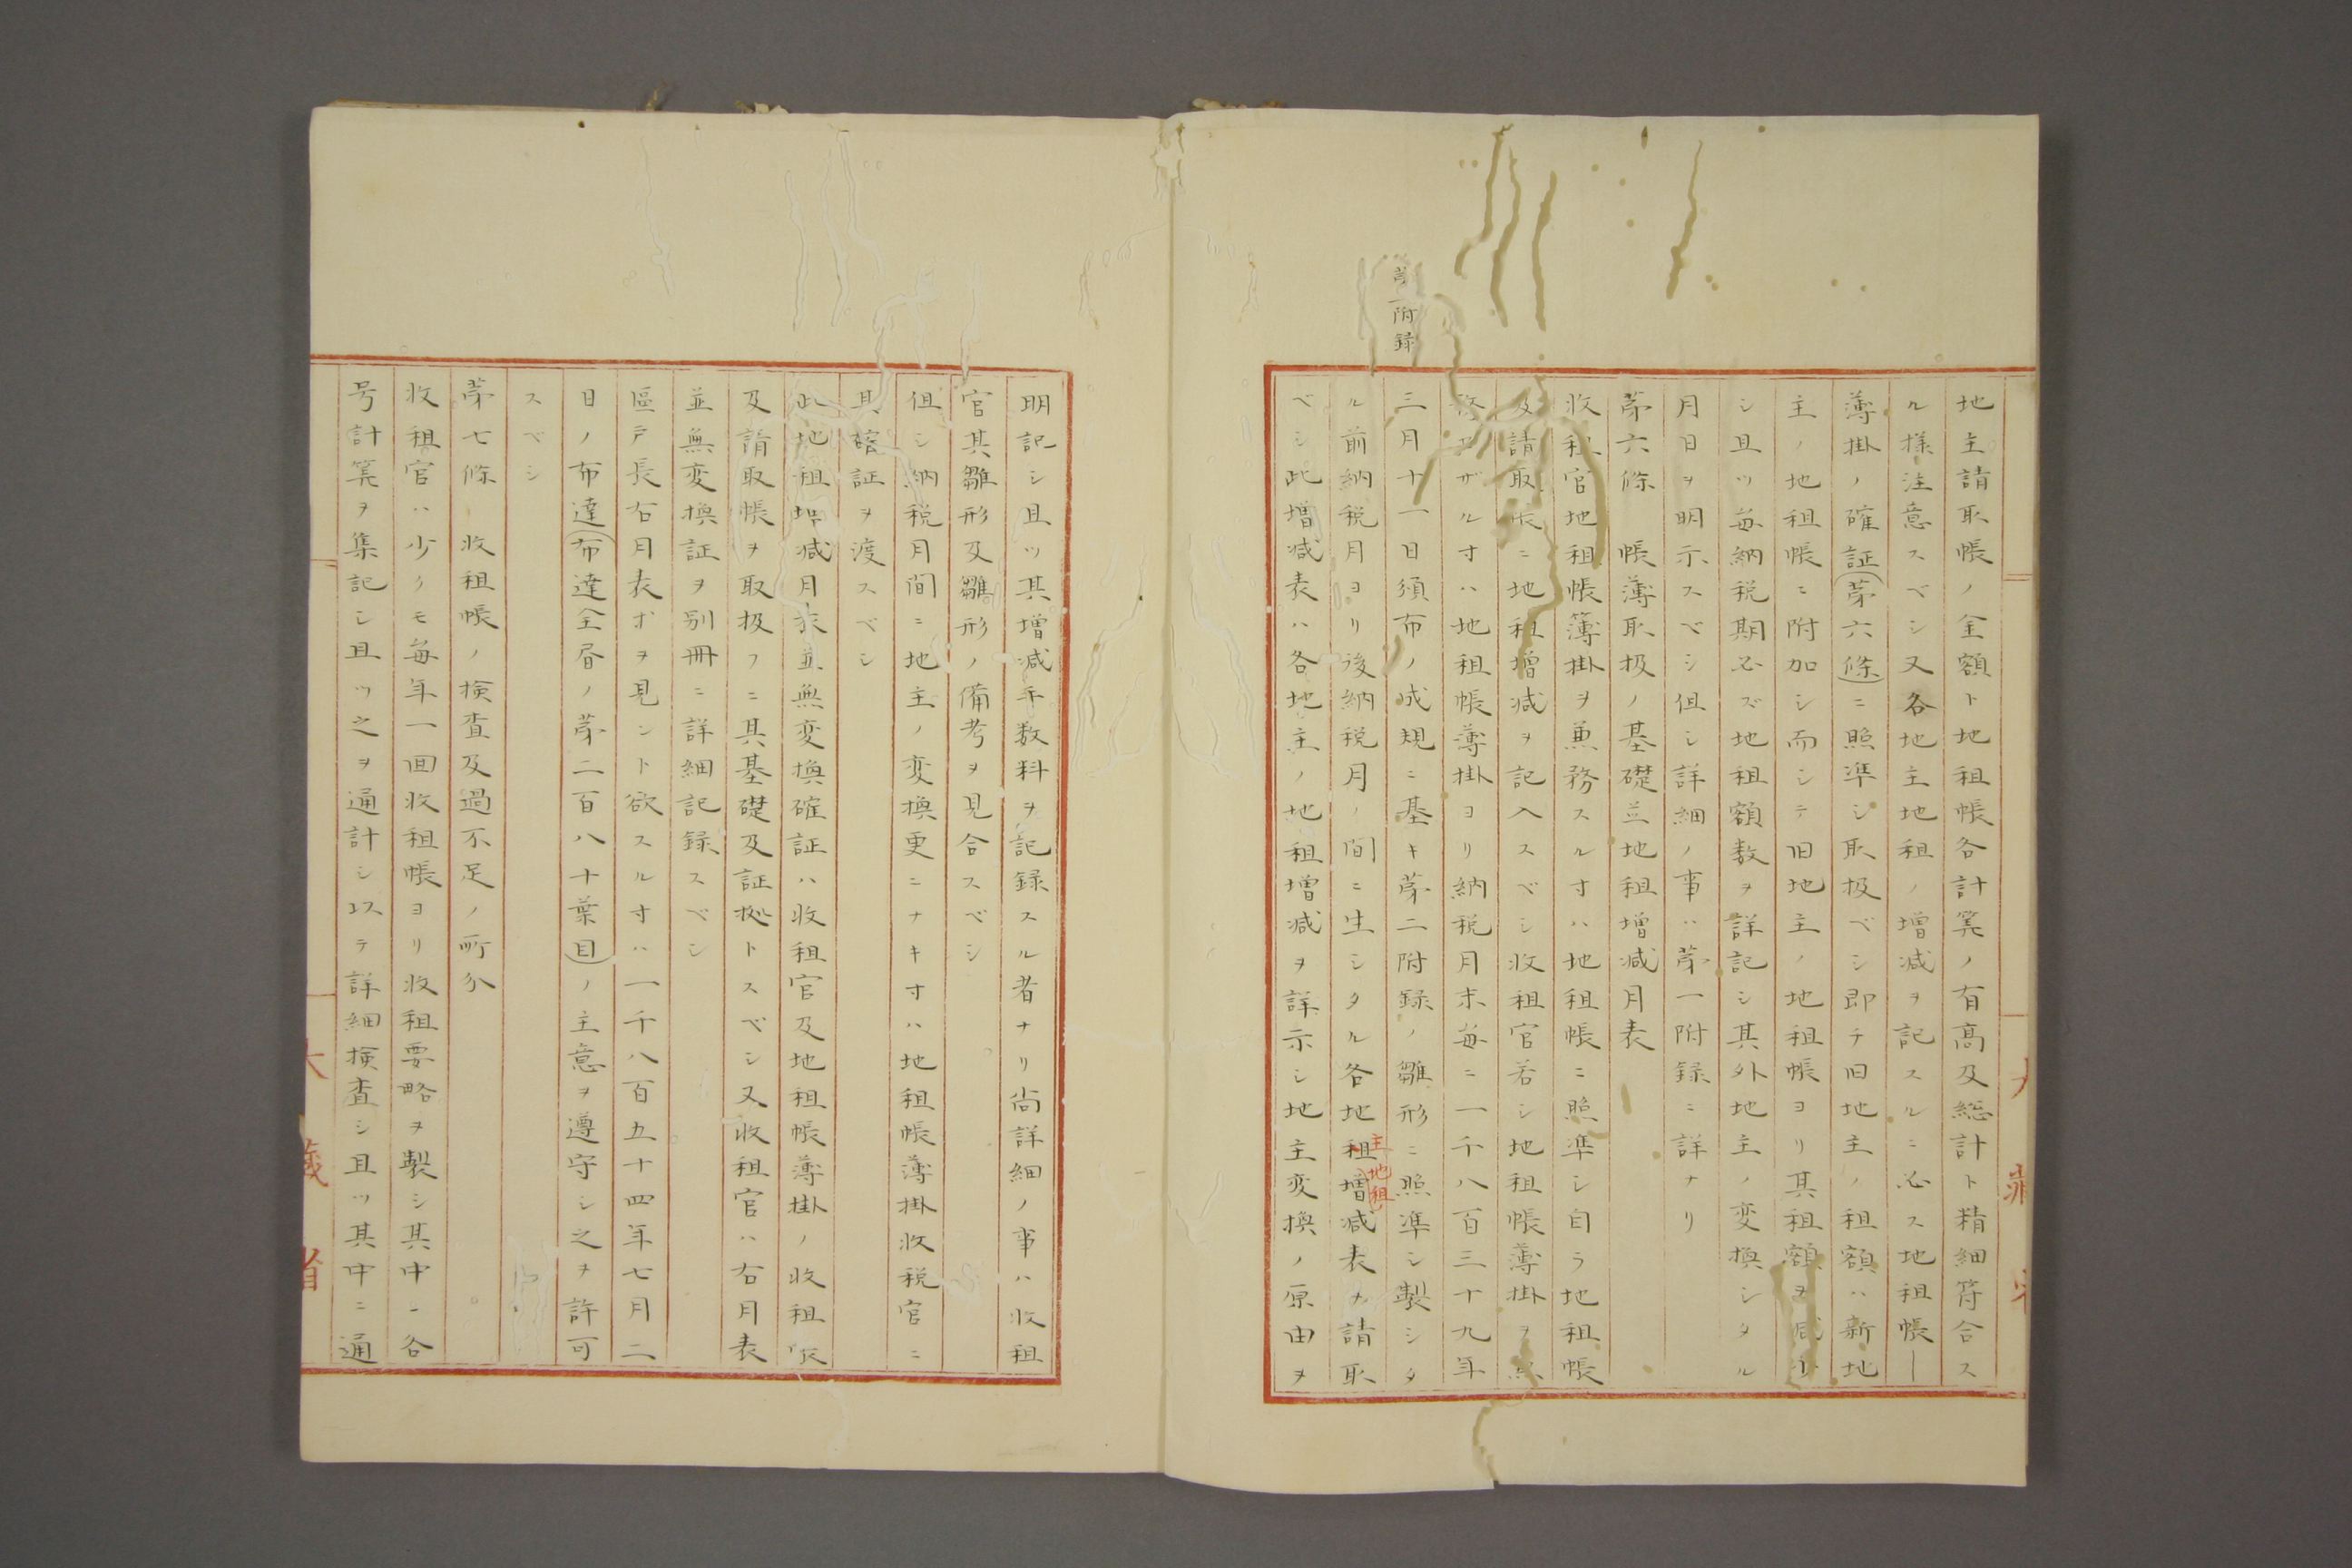 地主請取帳ノ全額ト地租帳各計筭ノ有髙及総計ト精細符合ス
ル様注意スベシ又各地主地租ノ増减ヲ記スルニ必ス地租帳
薄掛ノ確証(苐六條)ニ照凖シ取扱ベシ即チ旧地主ノ租額ハ新地
主ノ地租帳ニ附加シ而シテ旧地主ノ地租帳ヨリ其租額ヲ减少
シ且ツ毎納税期必ズ地租額数ヲ詳記シ其外地主ノ変換シタル
月日ヲ明示スベシ但シ詳細ノ事ハ苐一附録ニ詳ナリ
苐六條 帳薄取扱ノ基礎並地租増减月表
收租官地租帳簿掛ヲ兼務スル寸ハ地租帳ニ照凖シ自ラ地租帳
及請取帳ニ地租増减ヲ記入スベシ收租官若シ地租帳薄掛ヲ
ザル寸ハ地租帳薄掛ヨリ納税月末毎ニ一千八百三十九年
苐二附録
三月十一日頒布ノ成規ニ基キ苐二附録ノ雛形ニ照凖シ製シタ
ル前納税月ヨリ後納税月ノ間ニ生シタル各地租増减表ヲ請取
主地租
ベシ此増减表ハ各地主ノ地租増减ヲ詳示シ地主変換ノ原由ヲ
明記シ且ツ其増减手数料ヲ記録スル者ナリ尚詳細ノ事ハ收租
官其雛形及雛形ノ備考ヲ見合スベシ
但シ納税月間ニ地主ノ変換更ニナキ寸ハ地租帳薄掛收税官ニ
其確証ヲ渡スベシ
此地租増减月表並無変換確証ハ收租官及地租帳薄掛ノ收租帳
及請取帳ヲ取扱フニ其基礎及証拠トスベシ又收租官ハ右月表
並無変換証ヲ別冊ニ詳細記録スベシ
區戸長右月表ヲ見ント欲スル寸ハ一千八百五十四年七月二
日ノ布達(布達全昏ノ苐二百八十葉目)ノ主意ヲ遵守シ之ヲ許可
スベシ
苐七條 收租帳ノ検査及過不足ノ所分
收租官ハ少クモ毎年一回收租帳ヨリ收租要略ヲ製シ其中ニ各
号計筭ヲ集記シ且ツ之ヲ通計シ以テ詳細検査シ且ツ其中ニ通
大蔵省